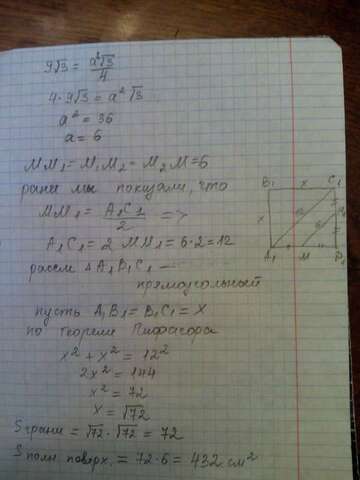 9√3 = a²√3/4
4·9√3 = a²√3
a² = 36
a = 6
MM₁ = M₁M₂ = M₂M = 6
ранее мы показали, что
MM₁ = A₁C₁/2 =>
A₁C₁ = 2 MM₁ = 6·2 = 12
расем Δ A₁B₁C₁ —
прямоугольный
пусть A₁B₁ = B₁C₁ = x
по теореме Пифагора
x² + x² = 12²
2x² = 144
x² = 72
x = √72
S грани = √72·√72 = 72
S полн. поверх. = 72·6 = 432 см²
B₁ x C₁
x
A₁ M D₁